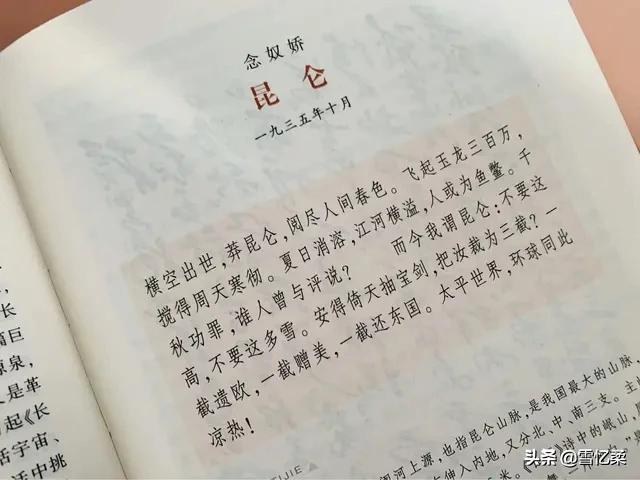 念奴娇
昆仑
一九三五年十月
横空出世，莽昆仑，阅尽人间春色。飞起玉龙三百万，
搅得周天寒彻。夏日消溶，江河横溢，人或为鱼鳖。千
秋功罪，谁人曾与评说？　　而今我谓昆仑：不要这
高，不要这多雪。安得倚天抽宝剑，把汝裁为三截？一
截遗欧，一截赠美，一截还东国。太平世界，环球同此
凉热！
长
巨
原泉，
人是革
起《长
话宇宙、
话中挑
河上源，也指昆仑山脉，是我国最大的山脉，
伸入内地，又分北、中、南三支。主
诗中的岷山，
TIJIE
头条 @雪忆菜